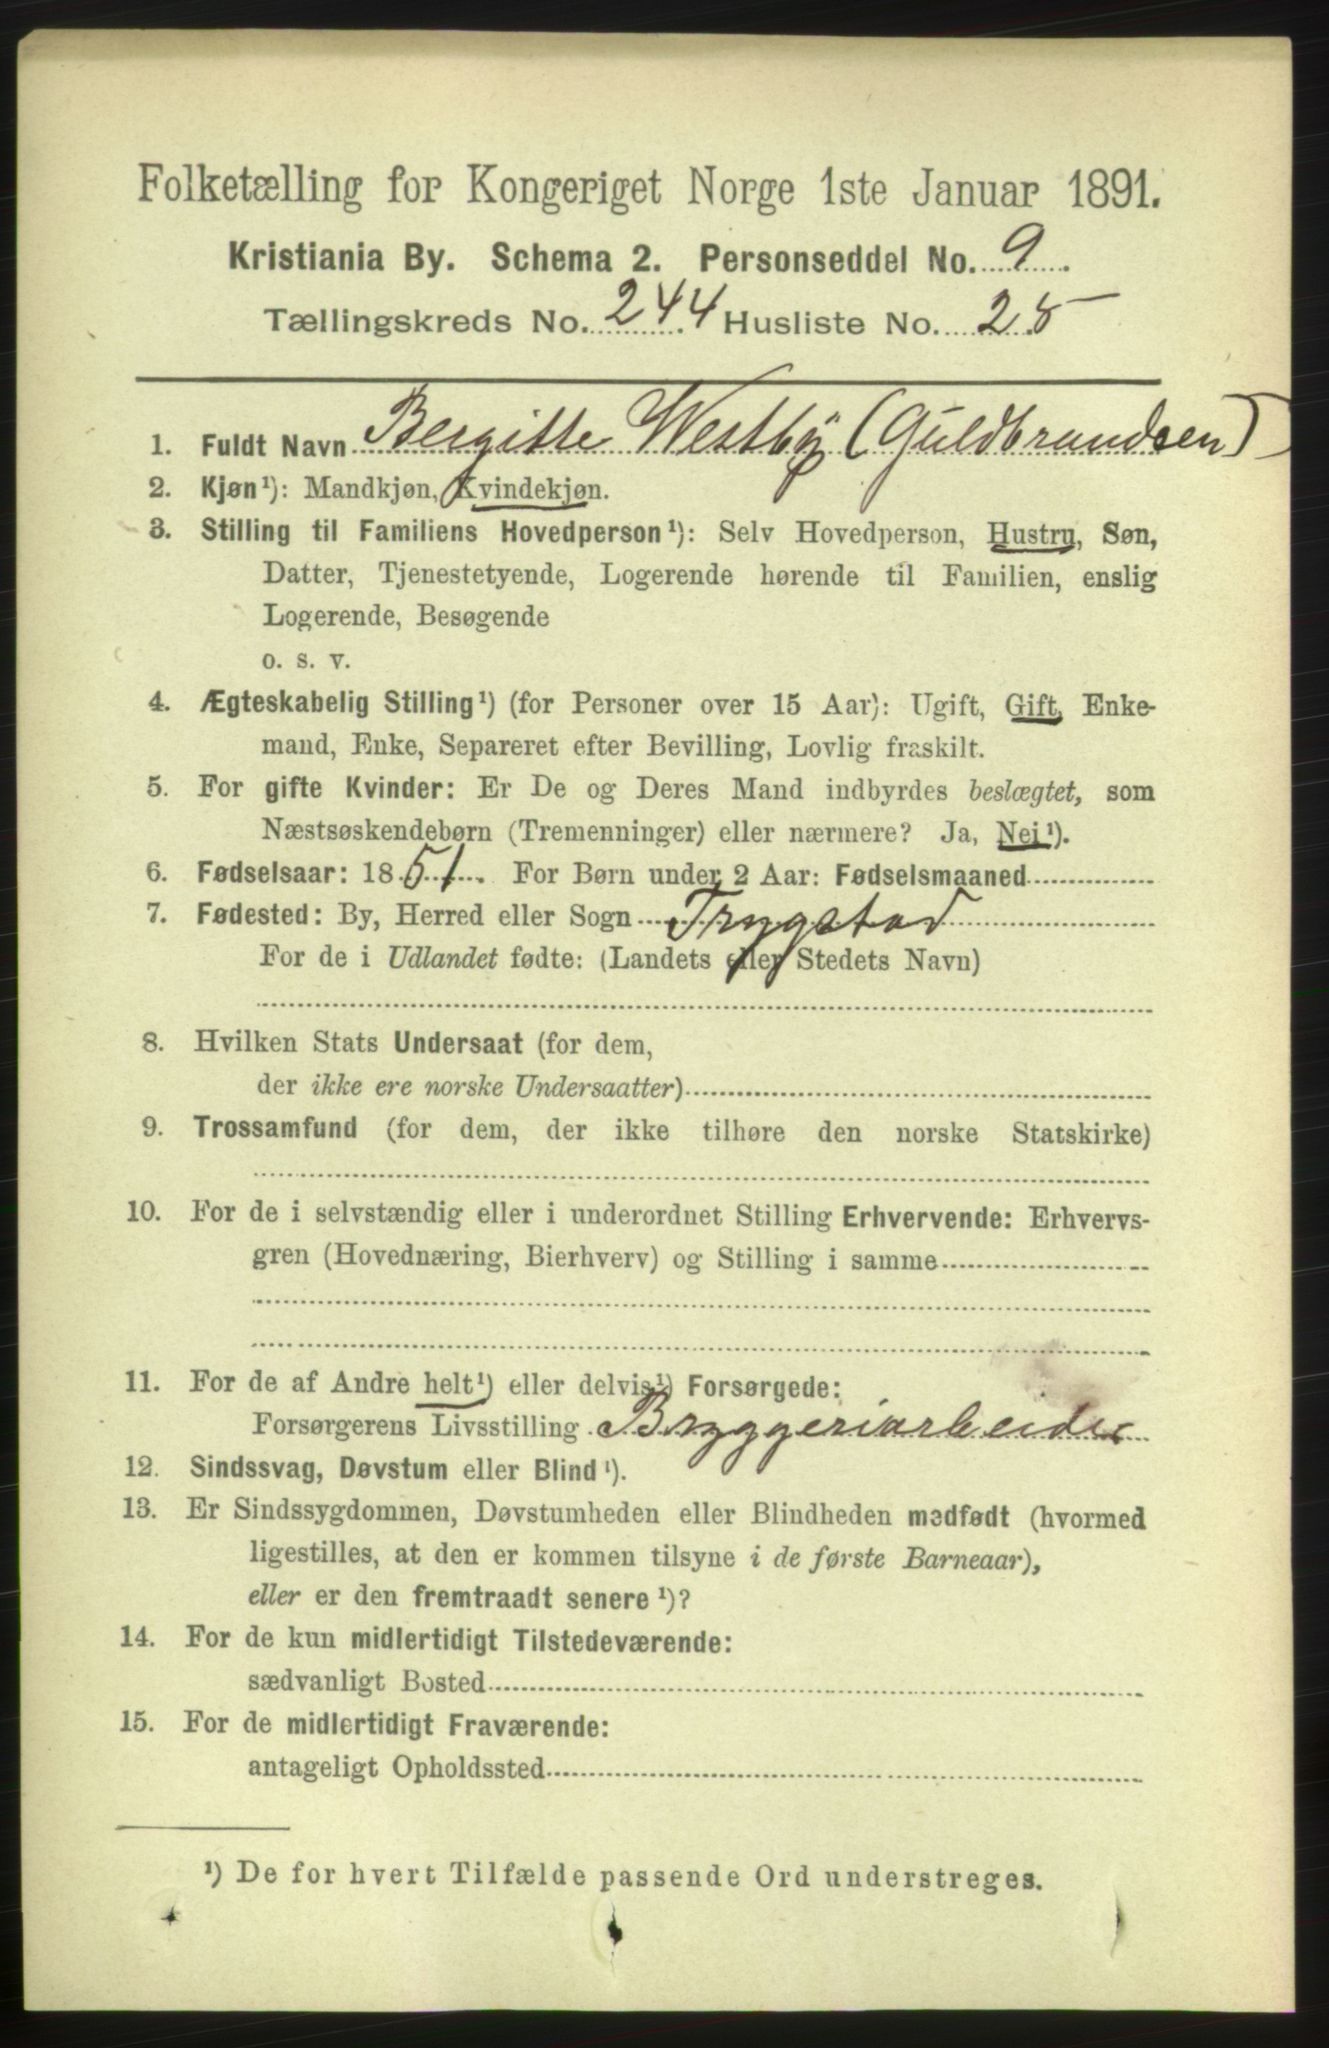 Folketælling for Kongeriget Norge 1ste Januar 1891.
Kristiania By. Schema 2. Personseddel No. 9.
Tællingskreds No. 244 Husliste No. 25
1. Fuldt Navn Bergitte Westby (Guldbrandsen)
2. Kjøn¹): Mandkjøn, Kvindekjøn.
3. Stilling til Familiens Hovedperson¹): Selv Hovedperson, Hustru, Søn,
Datter, Tjenestetyende, Logerende hørende til Familien, enslig
Logerende, Besøgende
o. s. v.
4. Ægteskabelig Stilling¹) (for Personer over 15 Aar): Ugift, Gift, Enke-
mand, Enke, Separeret efter Bevilling, Lovlig fraskilt.
5. For gifte Kvinder: Er De og Deres Mand indbyrdes beslægtet, som
Næstsøskendebørn (Tremenninger) eller nærmere? Ja, Nei¹).
6. Fødselsaar: 1851. For Børn under 2 Aar: Fødselsmaaned
7. Fødested: By, Herred eller Sogn Trygstad
For de i Udlandet fødte: (Landets eller Stedets Navn)
8. Hvilken Stats Undersaat (for dem,
der ikke ere norske Undersaatter)
9. Trossamfund (for dem, der ikke tilhøre den norske Statskirke)
10. For de i selvstændig eller i underordnet Stilling Erhvervende: Erhvervs-
gren (Hovednæring, Bierhverv) og Stilling i samme
11. For de af Andre helt¹) eller delvis¹) Forsørgede:
Forsørgerens Livsstilling Bryggeriarbeider
12. Sindssvag, Døvstum eller Blind¹).
13. Er Sindssygdommen, Døvstumheden eller Blindheden medfødt (hvormed
ligestilles, at den er kommen tilsyne i de første Barneaar),
eller er den fremtraadt senere¹)?
14. For de kun midlertidigt Tilstedeværende:
sædvanligt Bosted
15. For de midlertidigt Fraværende:
antageligt Opholdssted
¹) De for hvert Tilfælde passende Ord understreges.